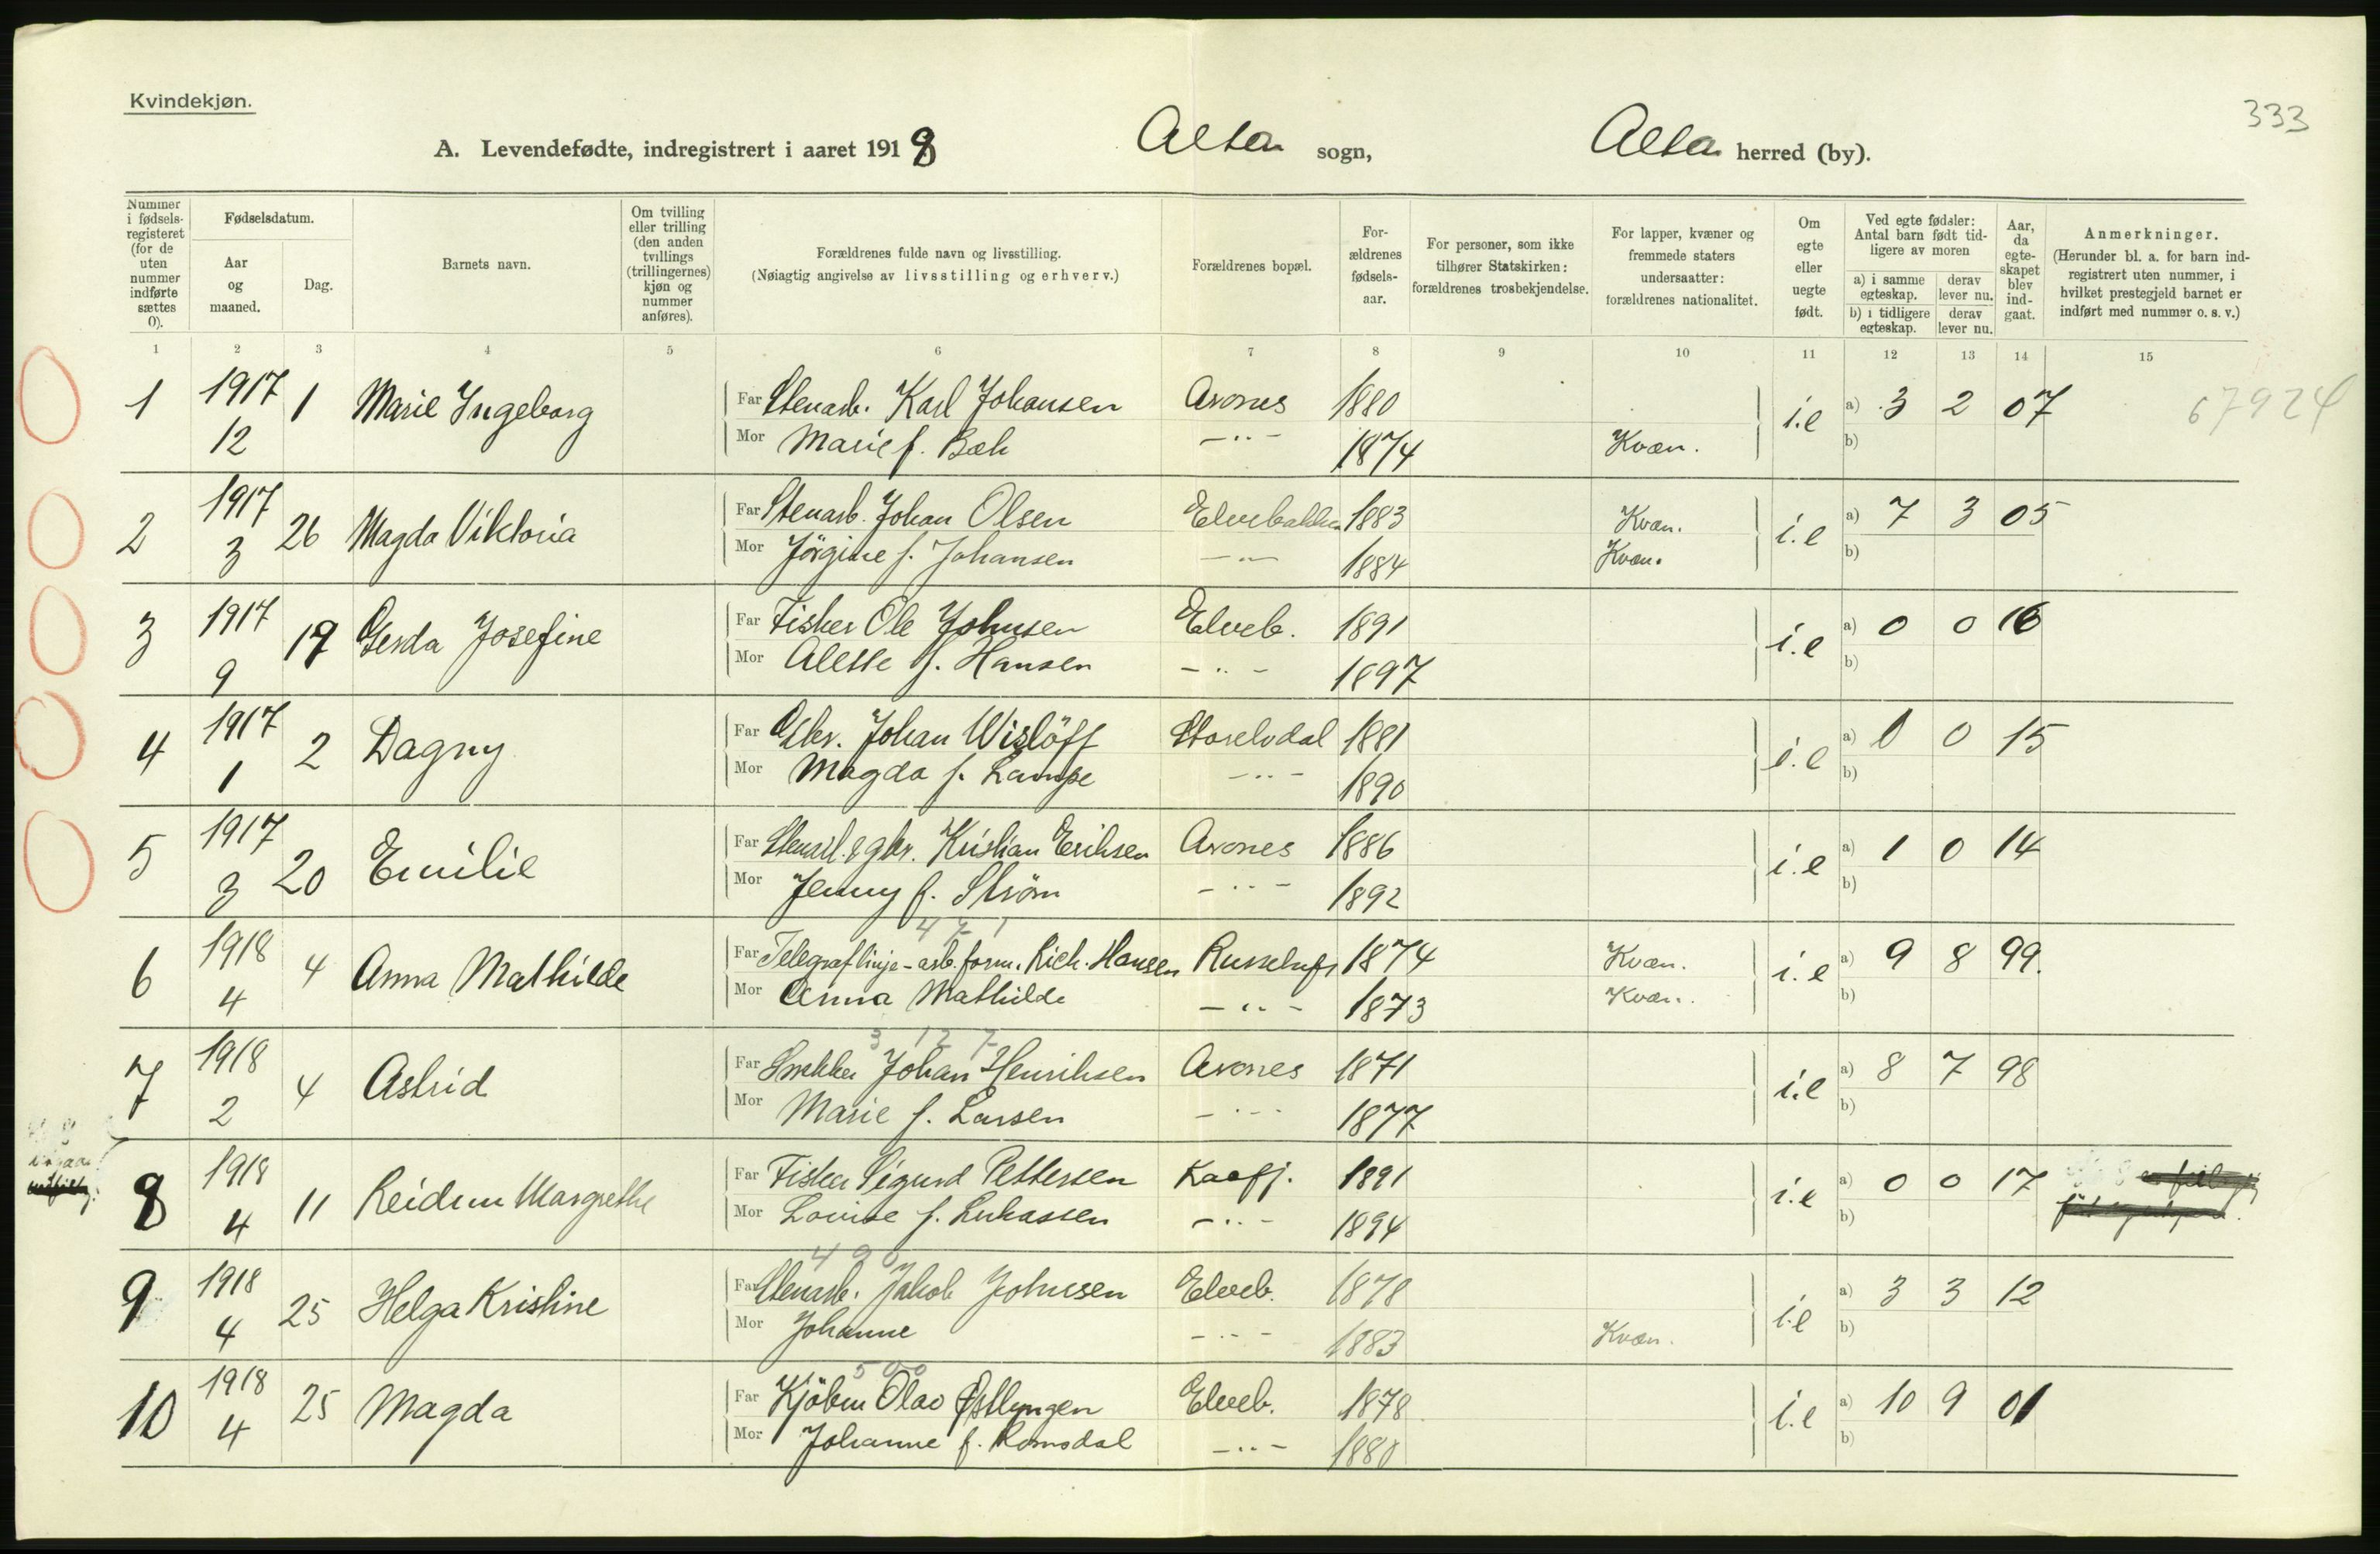 Kvindekjøn.
333
A. Levendefødte, indregistrert i aaret 1918 Alta sogn, Alta herred (by).
Nummer i fødsels-registeret (for de uten nummer indførte sættes 0).
Fødselsdatum.
Aar og maaned.
Dag.
Barnets navn.
Om tvilling eller trilling (den anden tvillings (trillingernes) kjøn og nummer anføres).
Forældrenes fulde navn og livsstilling.
(Nøiagtig angivelse av livsstilling og erhverv.)
Forældrenes bopæl.
For-ældrenes fødsels-aar.
For personer, som ikke tilhører Statskirken: forældrenes trosbekjendelse.
For lapper, kvæner og fremmede staters undersaatter: forældrenes nationalitet.
Om egte eller uegte født.
Ved egte fødsler: Antal barn født tid-ligere av moren
a) i samme egteskap.
derav lever nu.
b) i tidligere egteskap.
derav lever nu.
Aar, da egte-skapet blev ind-gaat.
Anmerkninger.
(Herunder bl. a. for barn ind-registrert uten nummer, i hvilket prestegjeld barnet er indført med nummer o. s. v.)
1 2 3 4 5 6 7 8 9 10 11 12 13 14 15
1 1917 12 1 Marie Ingeborg Far Stenarb. Karl Johansen Avones 1880 i.e a) 3 2 07 67924
Mor Marie f. Bæk -"- 1874 Kvæn. b)
2 1917 3 26 Magda Viktoria Far Stenarb. Johan Olsen Elvebakken 1883 Kvæn. i.e a) 7 3 05
Mor Jörgine f. Johansen -"- 1884 Kvæn. b)
3 1917 9 19 Gerda Josefine Far Fisker Ole Johnsen Elveb. 1891 i.e a) 0 0 16
Mor Alette f. Hansen -"- 1897 b)
4 1917 1 2 Dagny Far Gbr. Johan Wislöff Storelvdal 1881 i.e a) 0 15
Mor Magda f. Lampe -"- 1890 b)
5 1917 3 20 Emilie Far Stenarb. & gbr. Kristian Eriksen Avones 1886 i.e a) 1 0 14
Mor Jenny f. Ström -"- 1892 b)
4 7 1
6 1918 4 4 Anna Mathilde Far Telegraflinje-arb.form. Rich. Hansen 1874 Kvæn. i.e a) 9 8 99.
Mor Anna Mathilde -"- 1873 Kvæn. b)
3 12 7
7 1918 2 4 Astrid Far Snekker Johan Henriksen Avones 1871 i.e a) 8 7 98
Mor Marie f. Larsen -"- 1877 b)
8 1918 4 11 Reidun Margrethe Far Fisker Sigurd Pettersen Kaafj. 1891 i.e a) 0 0 17
Mor Lovise f. Lukassen -"- 1894 b)
4 9 0
9 1918 4 25 Helga Kristine Far Stenarb. Jakob Johnsen Elveb. 1878 i.e a) 3 3 12
Mor Johanne -"- 1883 Kvæn. b)
5 0 0
10 1918 4 25 Magda Far Kjöbm Olav Østlyngen Elveb. 1878 i.e a) 10 9 01
Mor Johanne f. Romsdal -"- 1880 b)